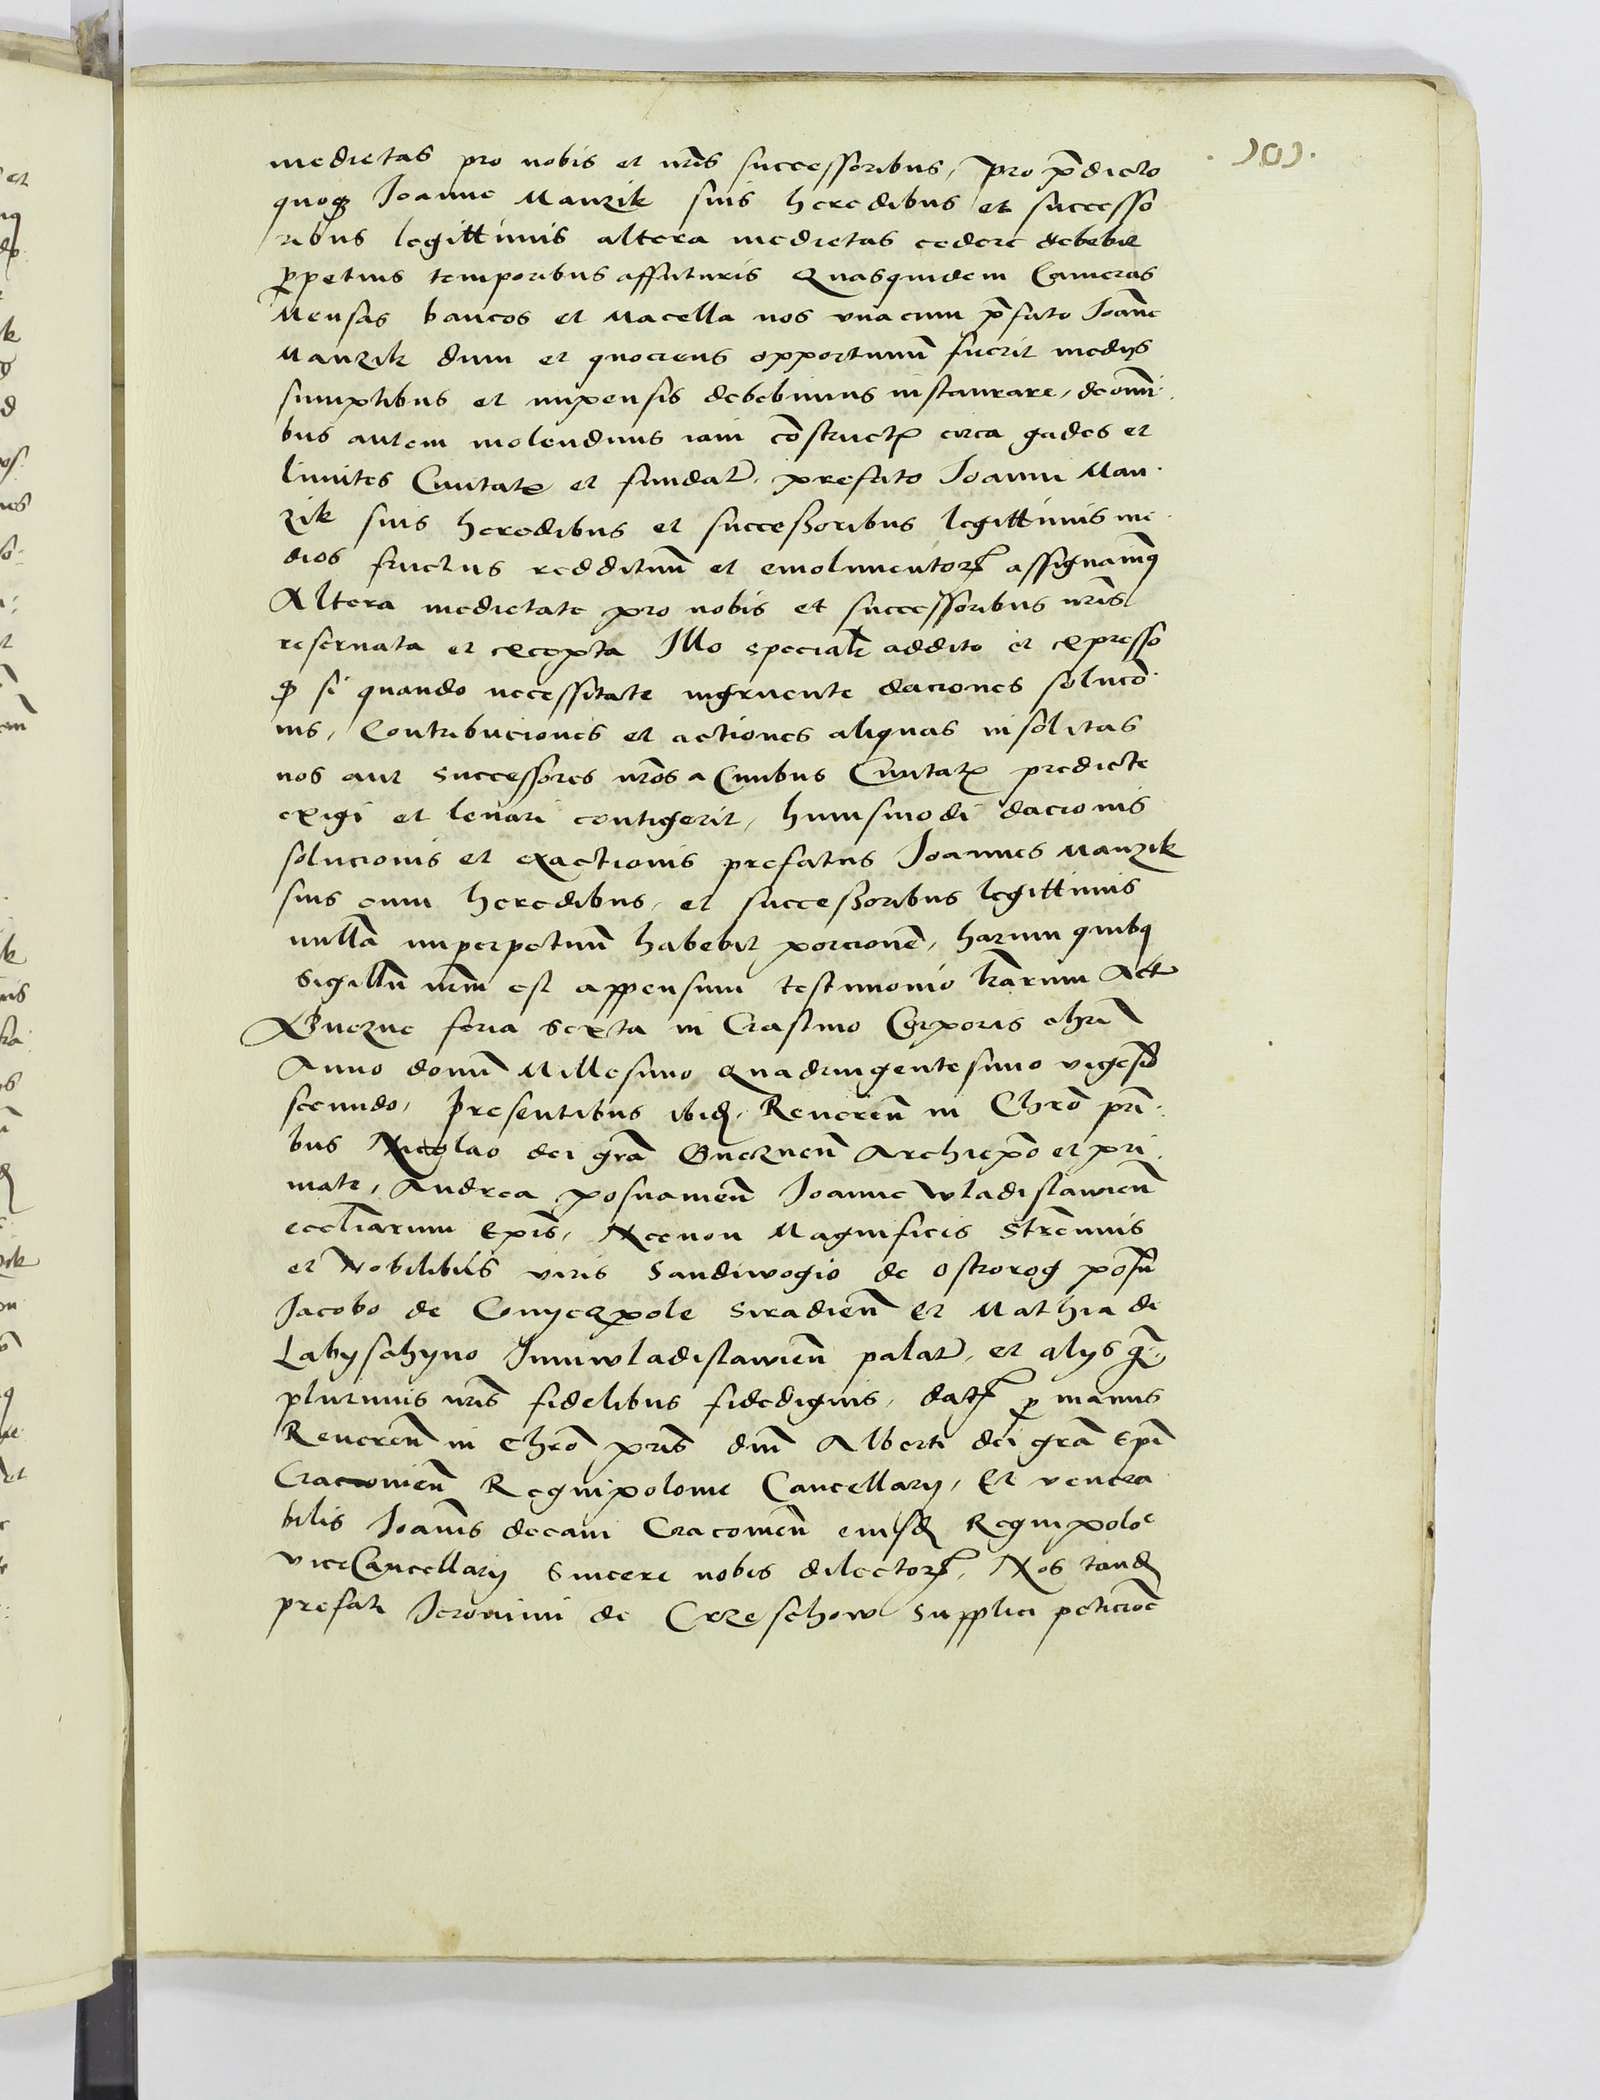 .101.
medietas pro nobis et nr̃is successoribus, pro p̃dicto
quoq3 Ioanne Manzik suis heredibus et successo
ribus legittimis altera medietas cedere debebit
ꝑpetuis temporibus affuturis Quasquidem Cameras
Mensas bancos et Macella nos vnacum p̃fato Ioañe
Manzik dum et quociens opportunũ fuerit medijs
sumptibus et impensis debebimus instaurare, de om̃i
bus autem molendinis iam cõstructꝭ circa gades et
limites Ciuitatꝭ et fundatꝭ, prefato Ioanni Man
zik suis heredibus et successoribus legittimis me
dios fructus reddituũ et emolumentoꝝ assignamꝰ
Altera medietate pro nobis et successoribus nr̃is
reseruata et excepta Illo specialr̃ addito et expresso
ꝙ si quando necessitate ingruente daciones solucõ
nis, Contribuciones et actiones aliquas insolitas
nos aut successores nr̃os a Ciuibus Ciuitatꝭ predicte
exigi et leuari contigerit, huiusmodi dacionis
solucionis et exactionis prefatus Ioannes Manzik
suis cum heredibus, et successoribus legittimis
nullã imperpetuũ habebit porcionẽ, harum quibꝰ
Sigillũ nr̃m est appensum testimonio lr̃arum Act
Gnezne feria sexta in Crastino Corporis chr̃i
Anno domĩ Millesimo Quadringentesimo vigesiõ
secundo, Presentibus ibidꝫ, Reuereñ in Chr̃o pr̃i
bus Nicolao dei gr̃a Gnezneñ Archiep̃o et pri
mate, Andrea posnanieñ Ioanne wladislawieñ
eccl̃iarum Ep̃is, Necnon Magnificis Strẽnuis
et Nobilibus viris Sandiwogio de Ostrorog posñ
Iacobo de Conyeczpole Siradieñ et Mathia de
Labyschyno Iuniwladislawieñ palatꝭ, et alijs q̃
plurimis nr̃is fidelibus fidedignis, datꝭ ꝑ manus
Reuereñ in chr̃o pr̃is dñi Alberti dei gr̃a Ep̃i
Cracouieñ Regni polonie Cancellarij, Et venera
bilis Ioañis decani Cracouieñ eiusdꝫ Regni poloe
vice Cancellarij Sincere nobis dilectoꝝ, Nos tandꝫ
prefati Ieronimi de Crzeschow supplici peticiõe